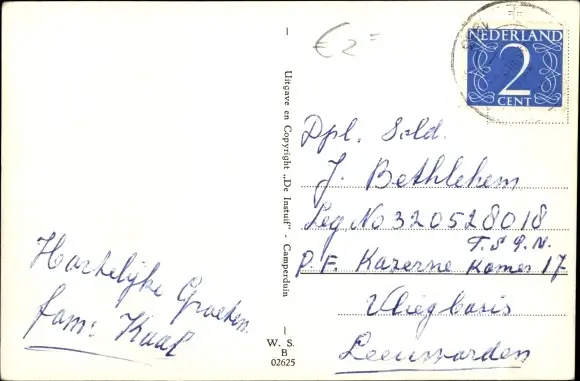 € 2 =
NEDERLAND
2
CENT
Uitgave en Copyright „De Instuif" - Camperduin
Dpl. Sold.
J. Bethlehem
Leg No 320528018
T.S.P.N.
P.F. Kazerne Kamer 17
Vliegbasis
Leeuwarden
Hartelijke Groeten
fam: Kaal
W. S.
B
02625